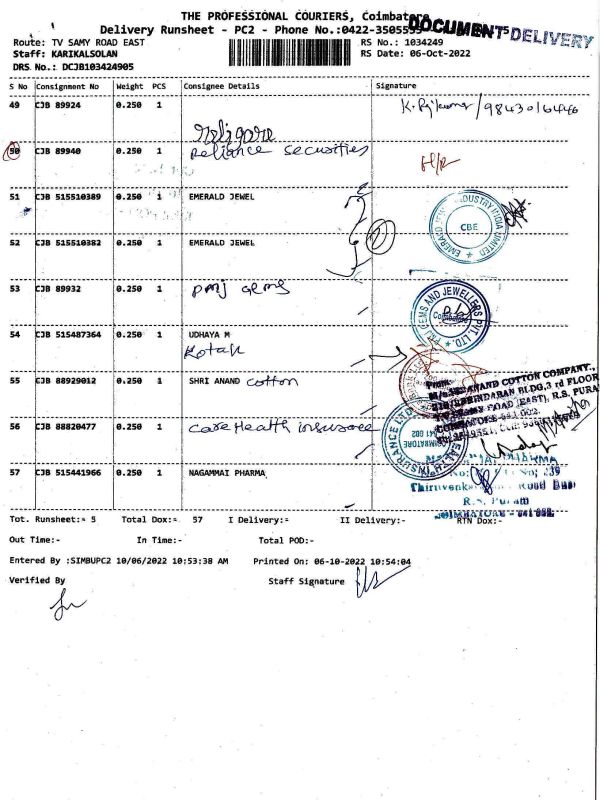 THE PROFESSIONAL COURIERS, Coimbatore
DOCUMENT DELIVERY
Delivery Runsheet - PC2 - Phone No.:0422-3505555
Route: TV SAMY ROAD EAST
RS No.: 1034249
Staff: KARIKALSOLAN
RS Date: 06-Oct-2022
DRS No.: DCJB103424905
S No Consignment No Weight PCS Consignee Details Signature
49 CJB 89924 0.250 1
religare
50 CJB 89940 0.250 1 Reliance securities
51 CJB 515510389 0.250 1 EMERALD JEWEL
52 CJB 515510382 0.250 1 EMERALD JEWEL
CBE
53 CJB 89932 0.250 1 pmj gems
GEMS AND JEWELLERS PVT. LTD.
Coimbatore
54 CJB 515487364 0.250 1 UDHAYA M
Kotak
55 CJB 88929012 0.250 1 SHRI ANAND cotton
From:
ANAND COTTON COMPANY.,
BRINDABAN BLDG, 3 rd FLOOR
ROAD (EAST), R.S. PURA
56 CJB 88820477 0.250 1 care Health insurance
57 CJB 515441966 0.250 1 NAGAMMAI PHARMA
R.S. Puram
Tot. Runsheet:= 5 Total Dox:= 57 I Delivery:- II Delivery:- RTN Dox:-
Out Time:- In Time:- Total POD:-
Entered By :SIMBUPC2 10/06/2022 10:53:38 AM Printed On: 06-10-2022 10:54:04
Verified By Staff Signature